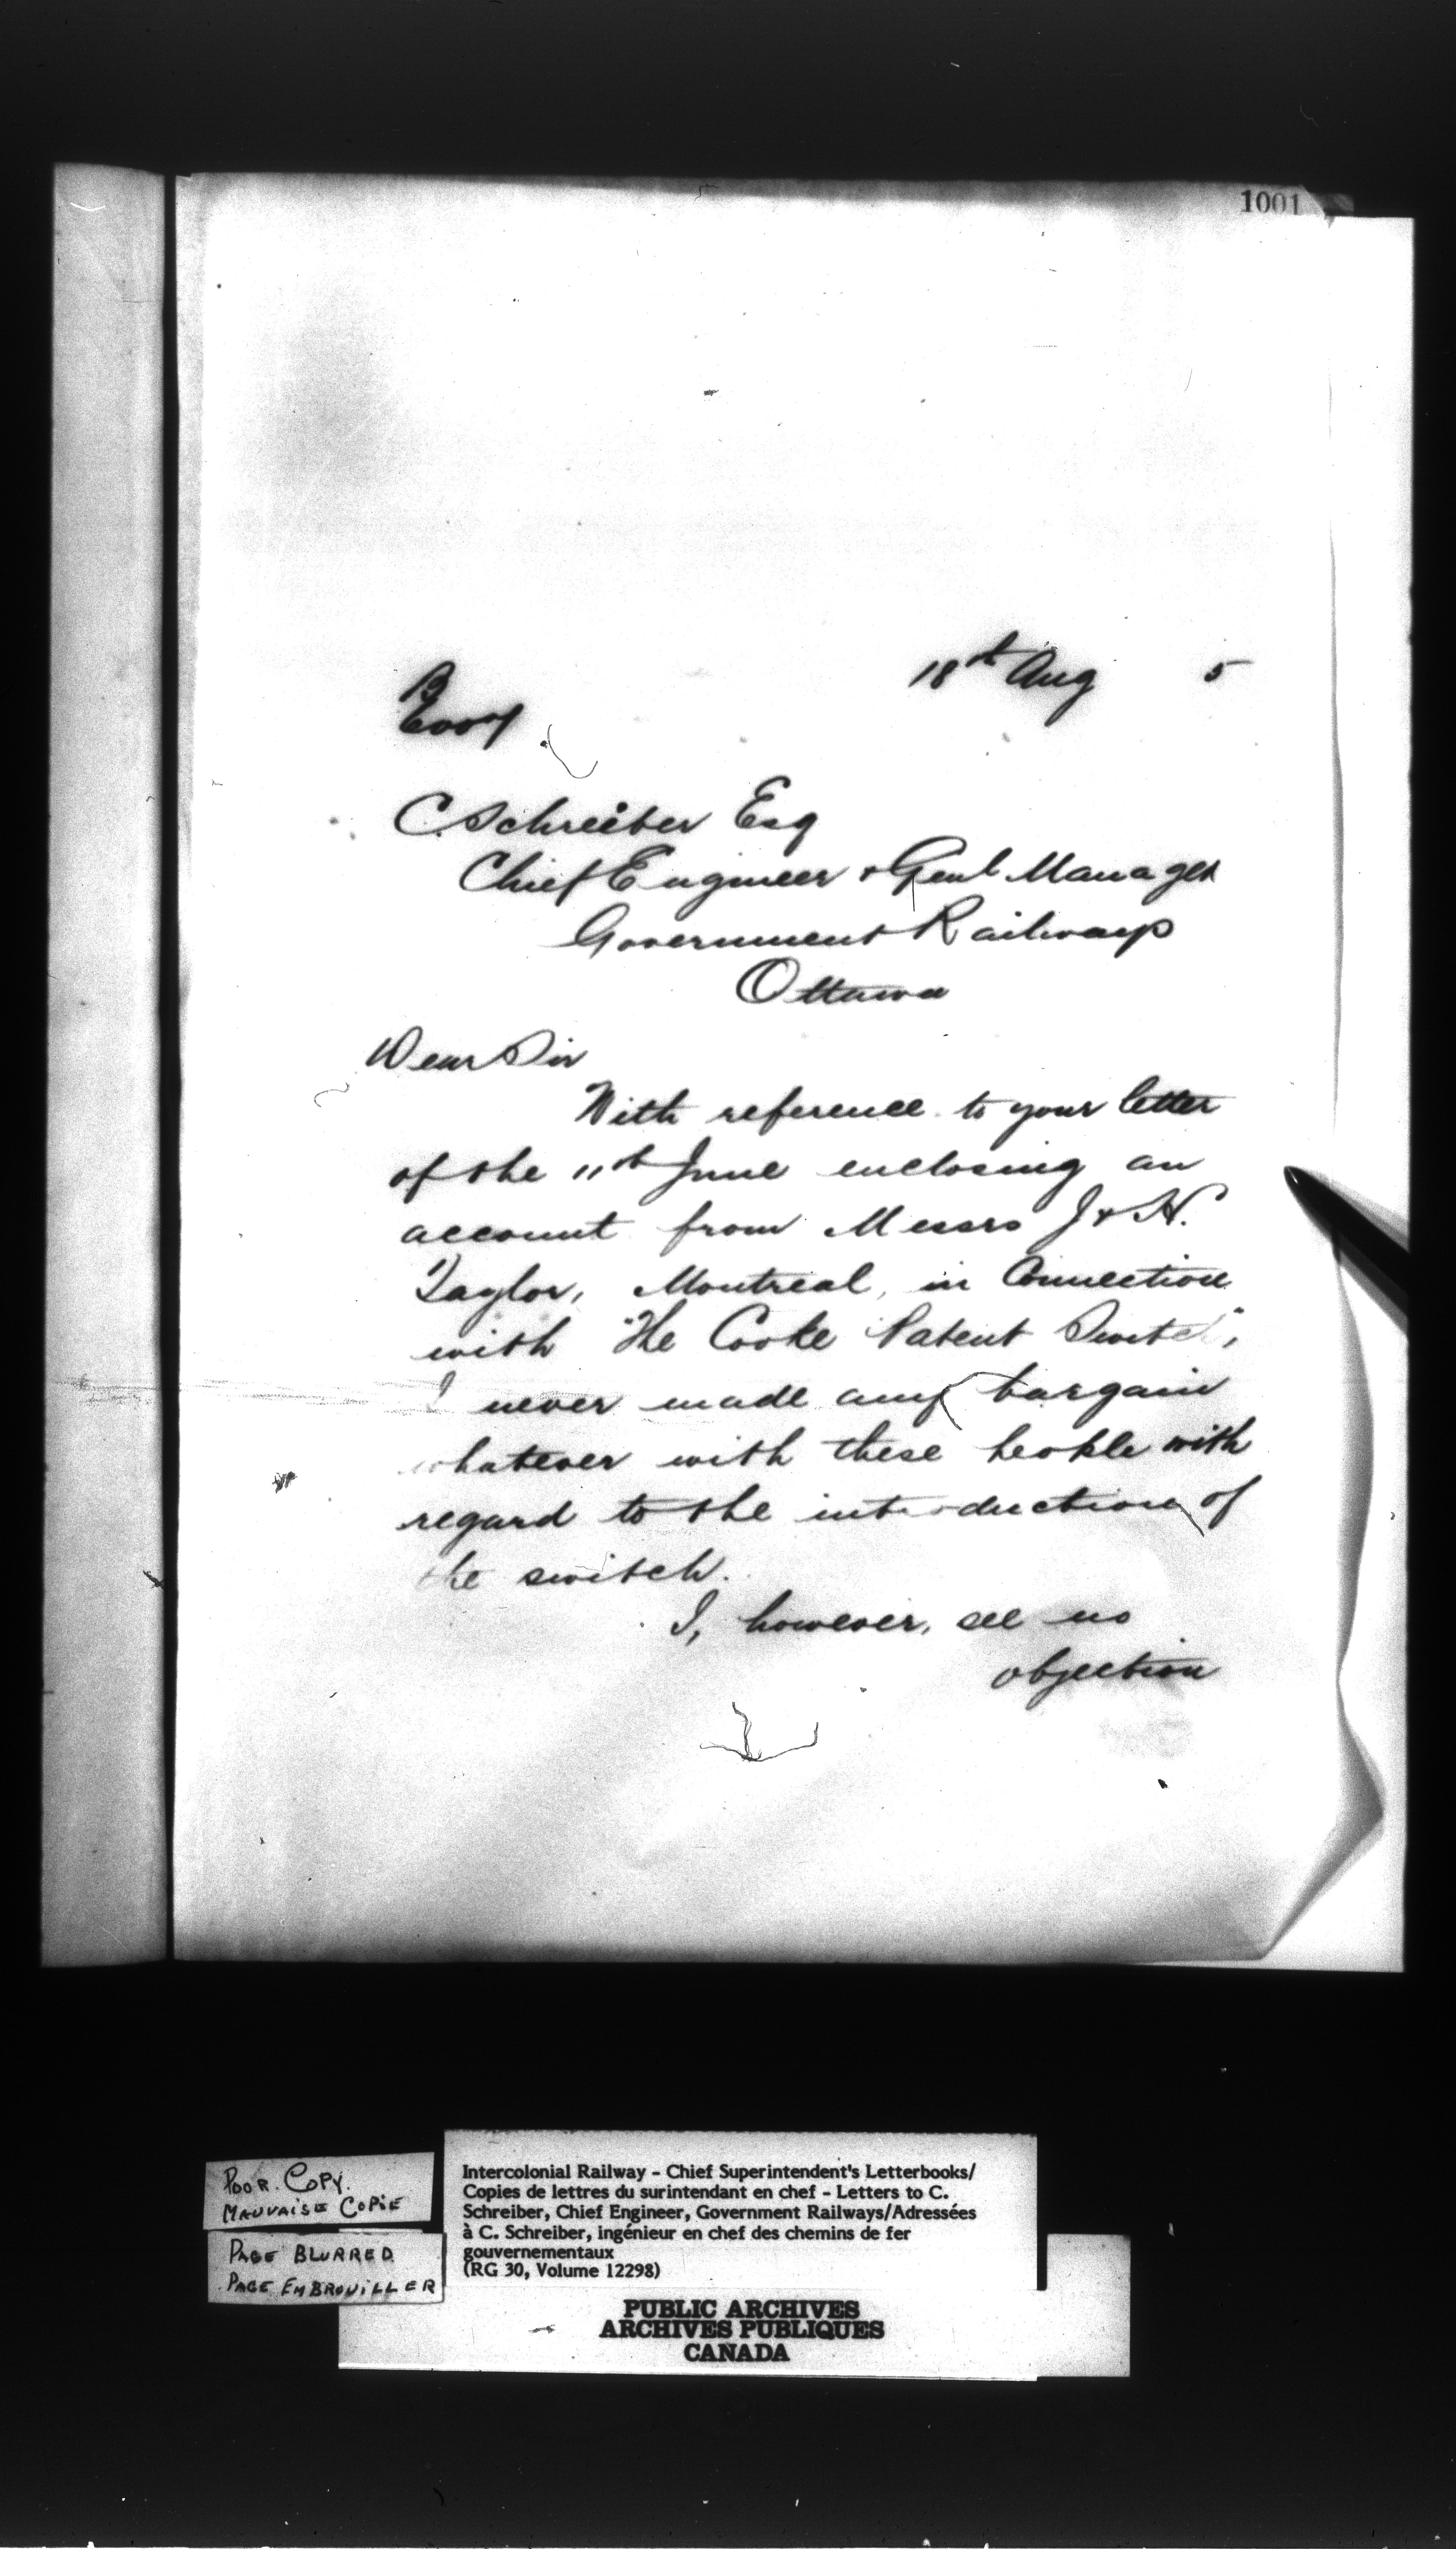 1001
18th Aug 5
B
C. Schreiber Esq
Chief Engineer & Genl Manager
Government Railways
Ottawa
Dear Sir
With reference to your letter
of the 11th June enclosing an
account from Messrs J & H.
Taylor, Montreal, in Connection
with "The Cooke Patent Switch",
I never made any bargain
whatever with these people with
regard to the introduction of
the switch.
I, however, see no
objection
POOR COPY.
MAUVAISE COPIE
PAGE BLURRED
PAGE EMBROUILLER
Intercolonial Railway - Chief Superintendent's Letterbooks/
Copies de lettres du surintendant en chef - Letters to C.
Schreiber, Chief Engineer, Government Railways/Adressées
à C. Schreiber, ingénieur en chef des chemins de fer
gouvernementaux
(RG 30, Volume 12298)
PUBLIC ARCHIVES
ARCHIVES PUBLIQUES
CANADA